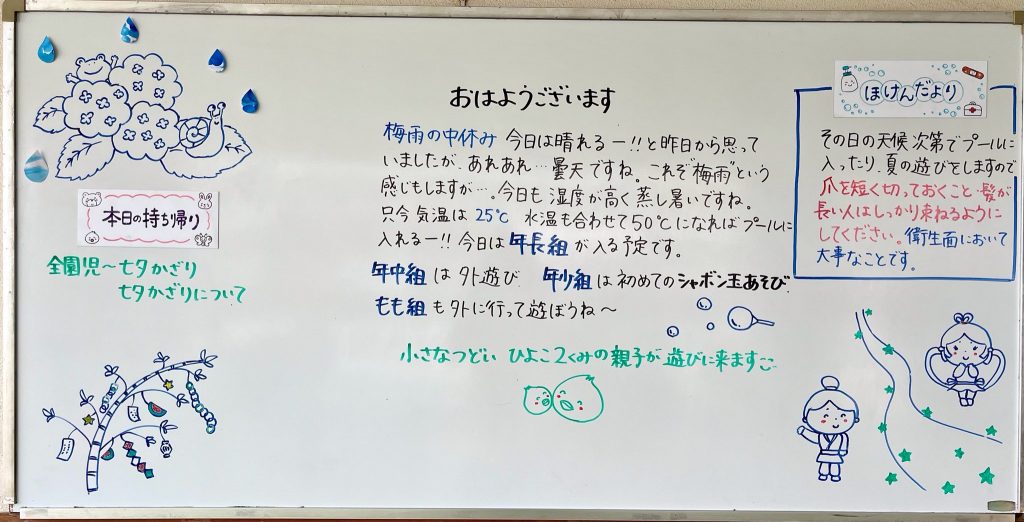 おはようございます
梅雨の中休み 今日は晴れるー!!と昨日から思って
いましたが、あれあれ…曇天ですね。これぞ"梅雨"という
感じもしますが…。今日も湿度が高く蒸し暑いですね。
只今気温は25℃ 水温も合わせて50℃になればプールに
入れるー!! 今日は年長組が入る予定です。
年中組は外遊び 年少組は初めてのシャボン玉あそび
もも組も外に行って遊ぼうね〜
小さなつどい ひよこ2くみの親子が遊びに来ます
本日の持ち帰り
全園児〜七夕かざり
七夕かざりについて
ほけんだより
その日の天候次第でプールに
入ったり、夏の遊びをしますので
爪を短く切っておくこと・髪が
長い人はしっかり束ねるように
してください。衛生面において
大事なことです。